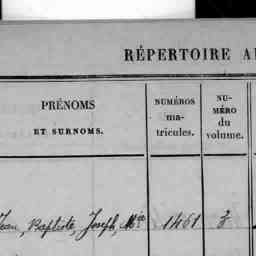 RÉPERTOIRE A
PRÉNOMS
ET SURNOMS.
NUMÉROS
ma-
tricules.
NU-
MÉRO
du
volume.
Jean, Baptiste, Joseph, Mie 1461 3